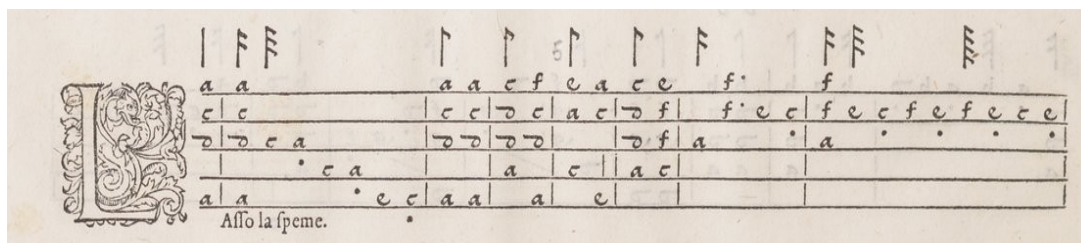 a a a a c f e a c e f· f
c c c c d c a c d f f· e c f e c f e f e c e
d d c a d d d d d f a a
c a a c a c
a a e c a a a e
LAſſo la ſpeme.